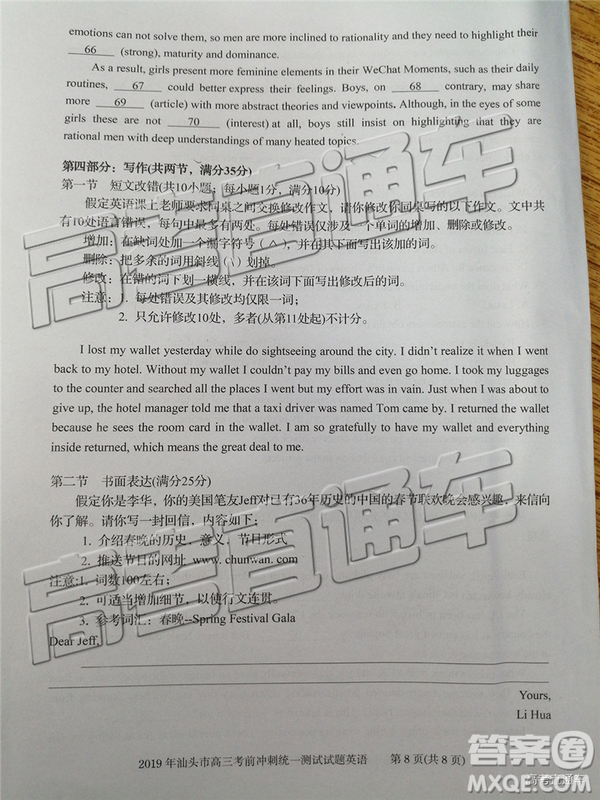 emotions can not solve them, so men are more inclined to rationality and they need to highlight their
66 (strong), maturity and dominance.
As a result, girls present more feminine elements in their WeChat Moments, such as their daily
routines, 67 could better express their feelings. Boys, on 68 contrary, may share
more 69 (article) with more abstract theories and viewpoints. Although, in the eyes of some
girls these are not 70 (interest) at all, boys still insist on highlighting that they are
rational men with deep understandings of many heated topics.
第四部分：写作(共两节，满分35分)
第一节 短文改错(共10小题；每小题1分，满分10分)
假定英语课上老师要求同桌之间交换修改作文，请你修改你同桌写的以下作文。文中共
有10处语言错误，每句中最多有两处。每处错误仅涉及一个单词的增加、删除或修改。
增加：在缺词处加一个漏字符号（∧），并在其下面写出该加的词。
删除：把多余的词用斜线（\）划掉。
修改：在错的词下划一横线，并在该词下面写出修改后的词。
注意：1. 每处错误及其修改均仅限一词；
2. 只允许修改10处，多者(从第11处起)不计分。
I lost my wallet yesterday while do sightseeing around the city. I didn't realize it when I went
back to my hotel. Without my wallet I couldn't pay my bills and even go home. I took my luggages
to the counter and searched all the places I went but my effort was in vain. Just when I was about to
give up, the hotel manager told me that a taxi driver was named Tom came by. I returned the wallet
because he sees the room card in the wallet. I am so gratefully to have my wallet and everything
inside returned, which means the great deal to me.
第二节 书面表达(满分25分)
假定你是李华，你的美国笔友Jeff对已有36年历史的中国的春节联欢晚会感兴趣，来信向
你了解。请你写一封回信，内容如下：
1. 介绍春晚的历史，意义，节目形式
2. 推送节目的网址 www.chunwan.com
注意:1. 词数100左右；
2. 可适当增加细节，以使行文连贯。
3. 参考词汇：春晚--Spring Festival Gala
Dear Jeff,
Yours,
Li Hua
2019年汕头市高三考前冲刺统一测试试题英语 第8页(共8页)
高考直通车
高考直通车
答案圈